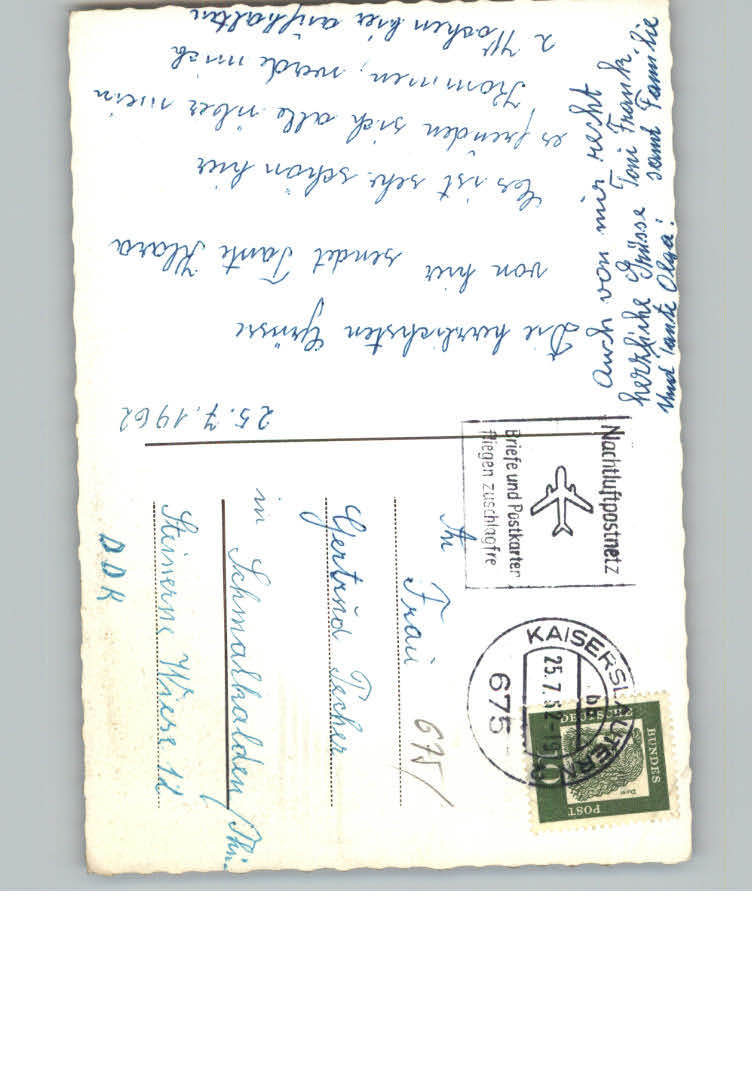 25.7.1962
Die herzlichsten Grüsse
von hier sendet Tante Klara
Es ist sehr schön hier
es freuden sich alle über mein
Kommen, werde mich
2 Wochen hier aufhalten
Auch von mir recht
herzliche Grüsse Toni Frank.
Und Tante Olga! samt Familie
Nachtluftpostnetz
Briefe und Postkarten
fliegen zuschlagfre
KAISERSLAUTERN
25.7.62-19
675
DEUTSCHE
BUNDES
POST
10
An
Frau
Gertrud Pecher
in Schmalkalden/Thü.
Steinerne Wiese 12
DDR
675/